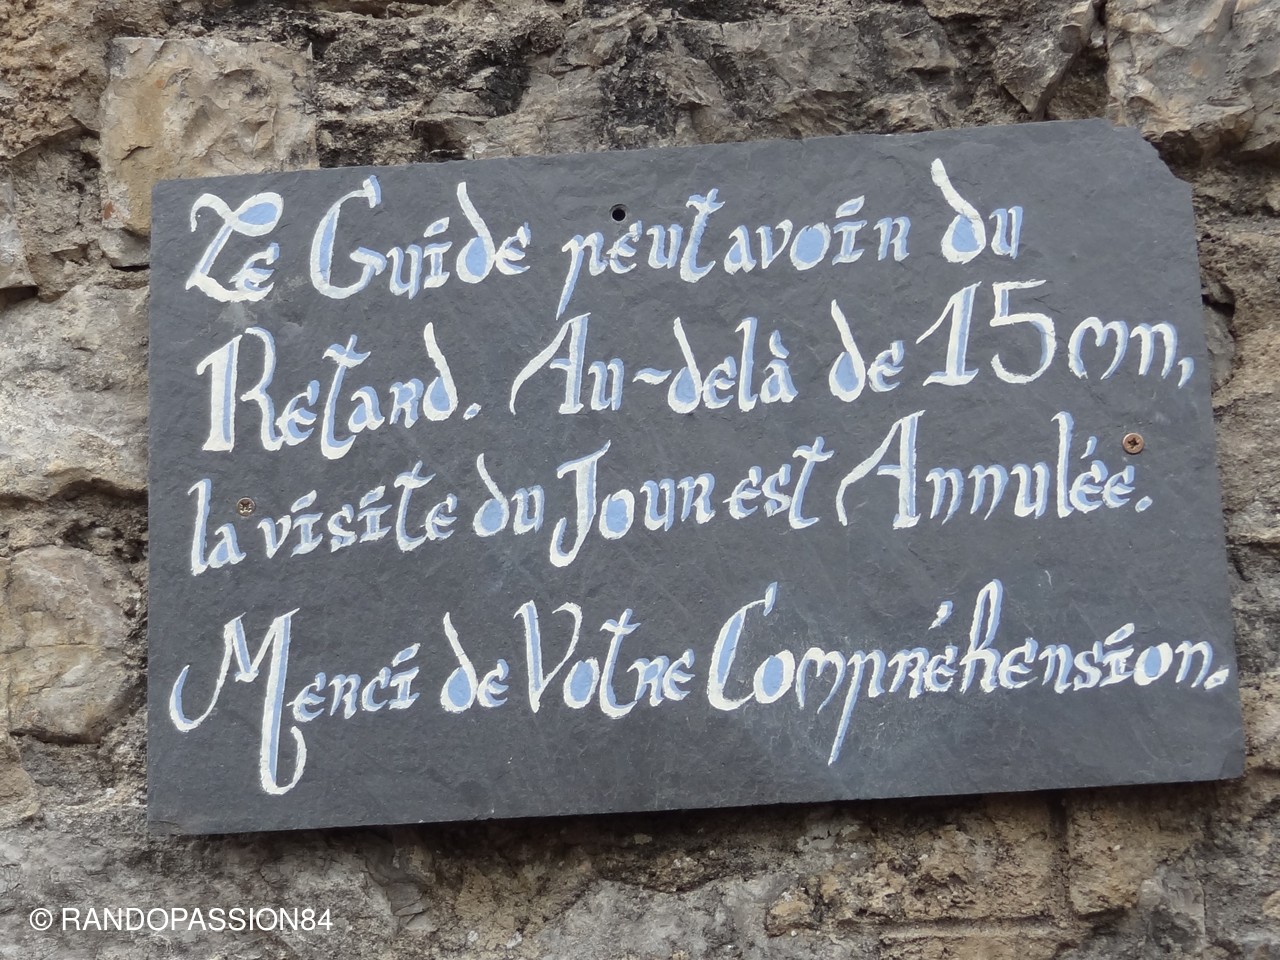 Le Guide peut avoir du
Retard. Au-delà de 15mn,
la visite du Jour est Annulée.
Merci de Votre Compréhension.
© RANDOPASSION84